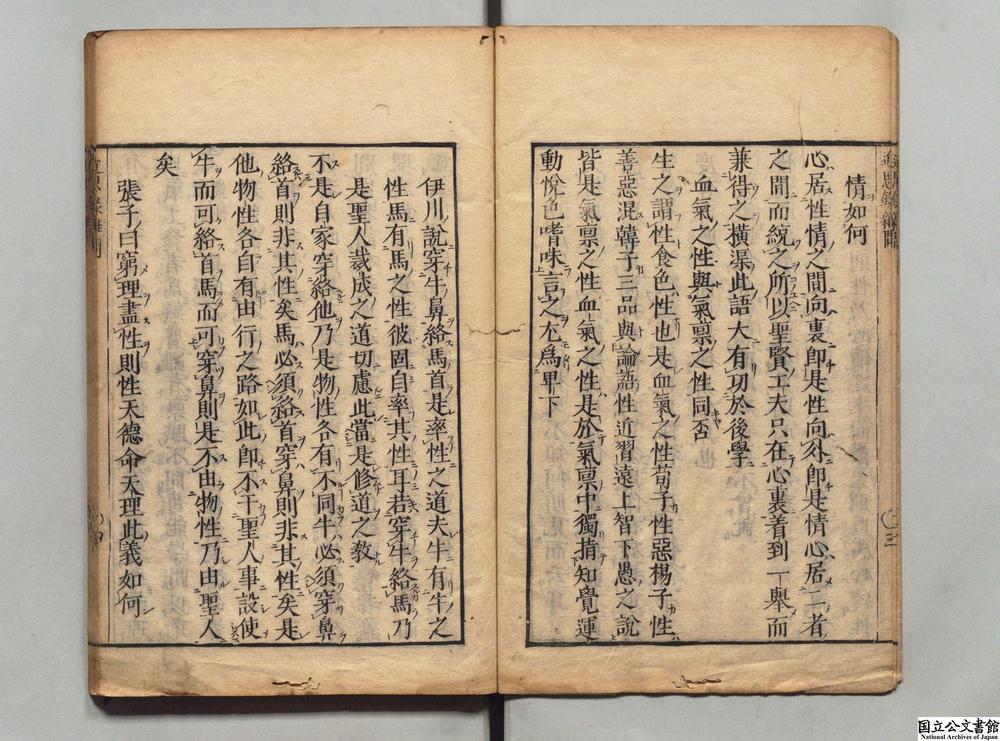 情如何
心居性情之間向裏卽是性向外卽是情心居二者
之間而統之所以聖賢工夫只在心裏着到一舉而
兼得之橫渠此語大有功於後學
血氣之性與氣稟之性同否
生之謂性食色性也是血氣之性荀子性惡楊子性
善惡混韓子三品與論語性近習遠上智下愚之說
皆是氣稟之性血氣之性是於氣稟中獨揹知覺運
動悅色嗜味言之尤爲卑下
伊川說穿牛鼻絡馬首是率性之道夫牛有牛之
性馬有馬之性彼固自率其性耳若穿牛絡馬乃
是聖人裁成之道切慮此當是修道之敎
不是自家穿絡他乃是物性各有不同牛必須穿鼻
絡首則非其性矣馬必須絡首穿鼻則非其性矣是
他物性各自有由行之路如此卽不干聖人事設使
牛而可絡首馬而可穿鼻則是不由物性乃由聖人
矣
張子曰窮理盡性則性天德命天理此義如何
国立公文書館
National Archives of Japan